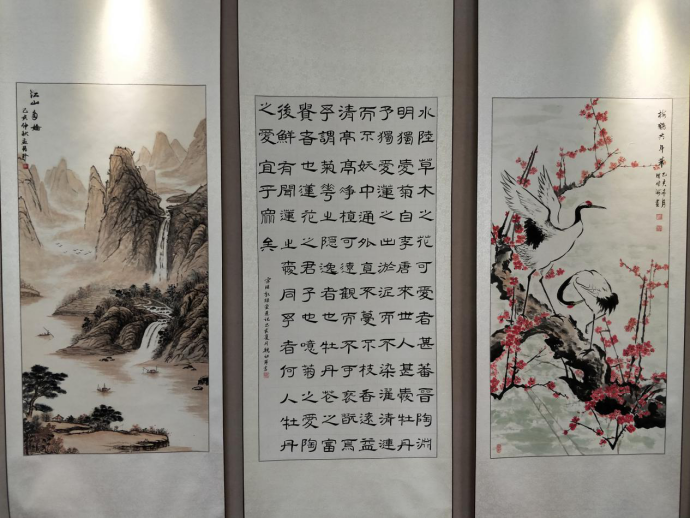 江山多娇
己亥仲秋
水陸草木之花可愛者甚蕃晉陶淵
明獨愛菊自李唐來世人甚愛牡丹
予獨愛蓮之出淤泥而不染濯清漣
而不妖中通外直不蔓不枝香遠益
清亭亭淨植可遠觀而不可褻翫焉
予謂菊華之隱逸者也牡丹花之富
貴者也蓮花之君子也噫菊之愛陶
後鮮有聞蓮之愛同乎者何人牡丹
之愛宜乎眾矣